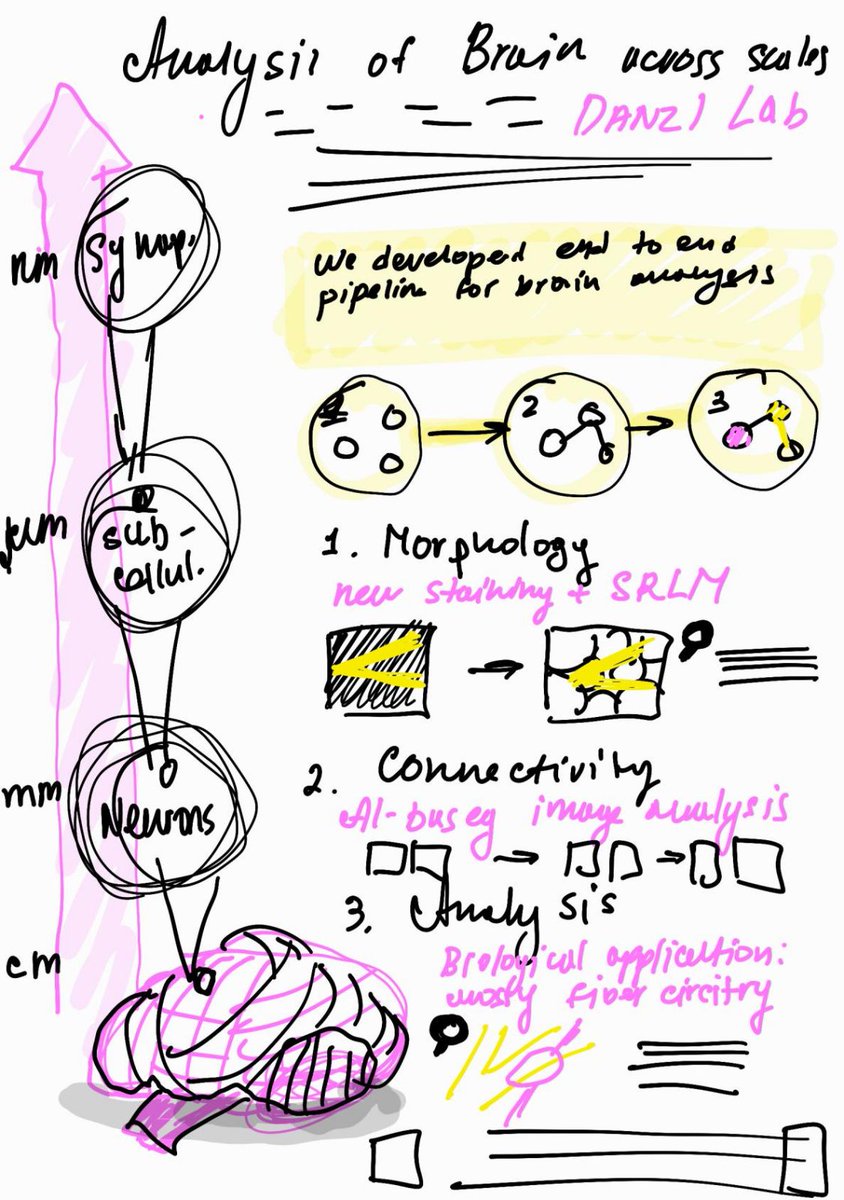 Analysis of Brain across scales
DANZI Lab
nm
Synap.
We developed end to end
pipeline for brain analysis
2
3
µm
sub-
cellul.
1. Morphology
new staining + SRLM
mm
Neurons
2. Connectivity
AI-based image analysis
3. Analysis
cm
Biological application:
mostly fiber circitry